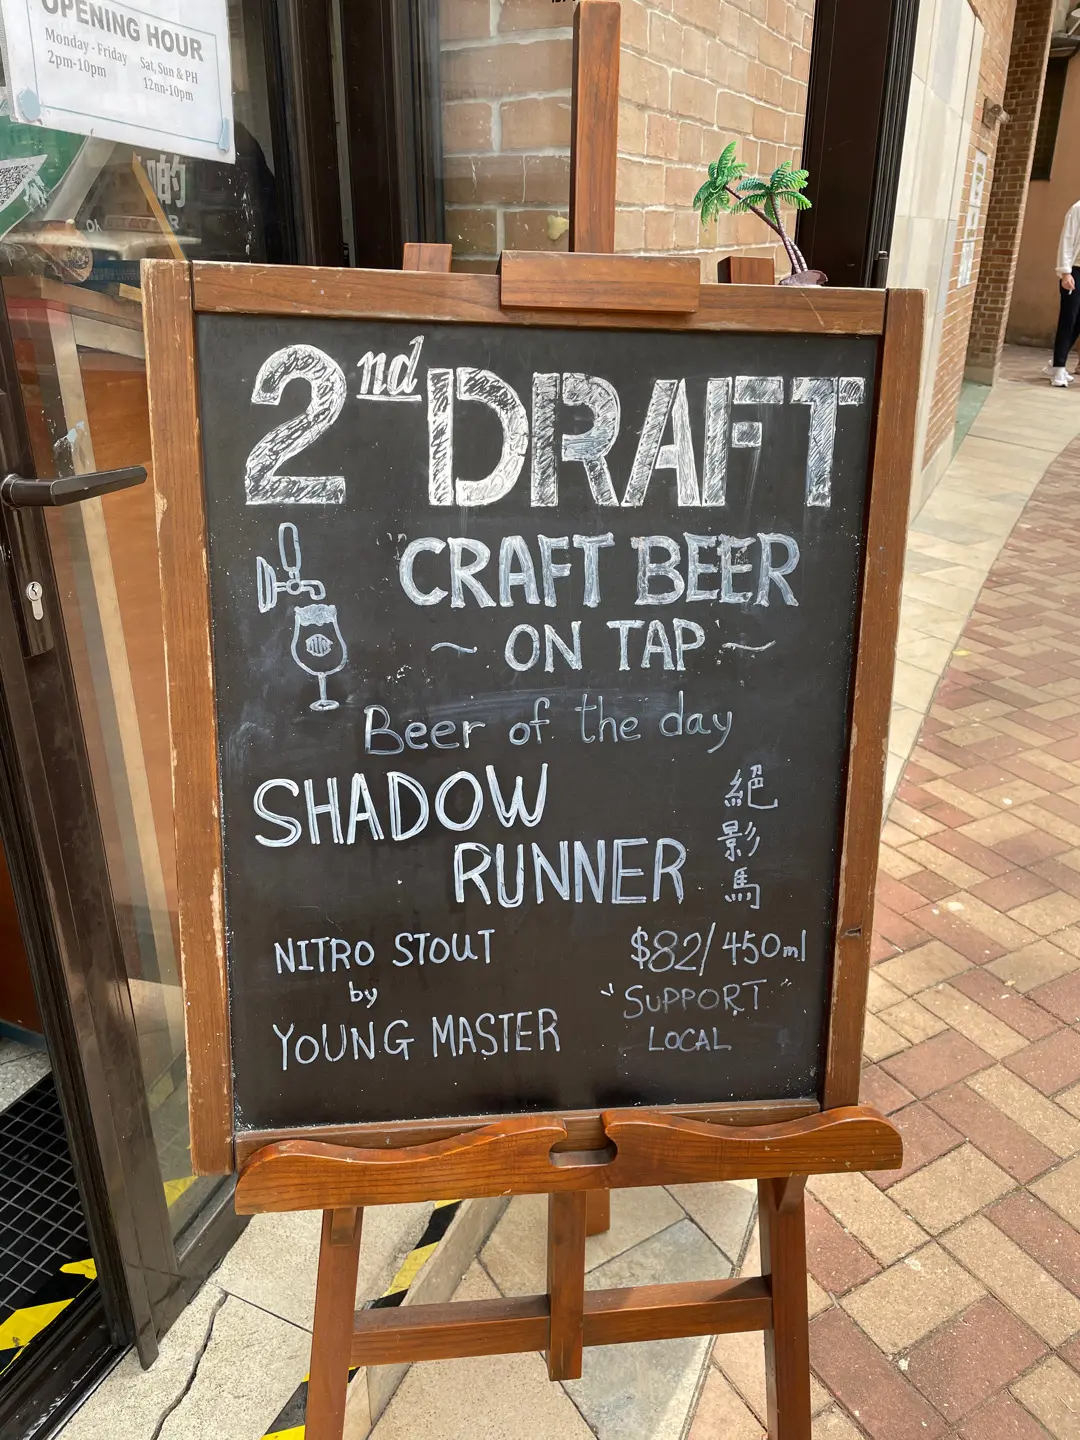 OPENING HOUR
Monday - Friday Sat, Sun & PH
2pm-10pm 12nn-10pm
2nd DRAFT
"CRAFT BEER
~ ON TAP ~
Beer of the day
SHADOW
RUNNER
絕影馬
NITRO STOUT
by
YOUNG MASTER
$82/450ml
"SUPPORT"
LOCAL